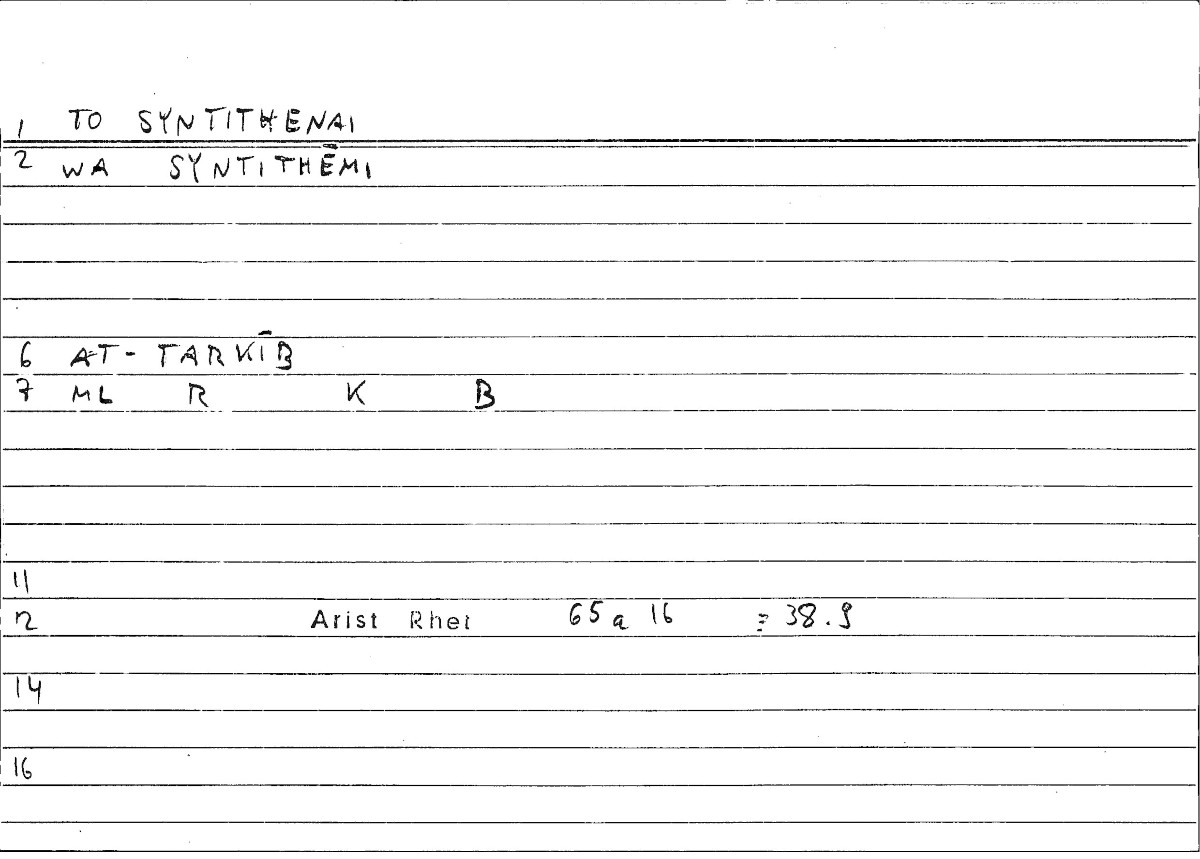 1 TO SYNTITHENAI
2 WA SYNTITHĒMI
6 AT-TARKĪB
7 ML R K B
11
12 Arist Rhet 65 a 16 = 38.9
14
16